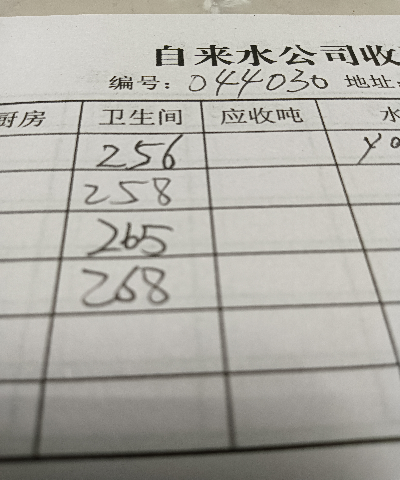 自来水公司收
编号: 044030 地址:
厨房 卫生间 应收吨 水
256
258
265
268